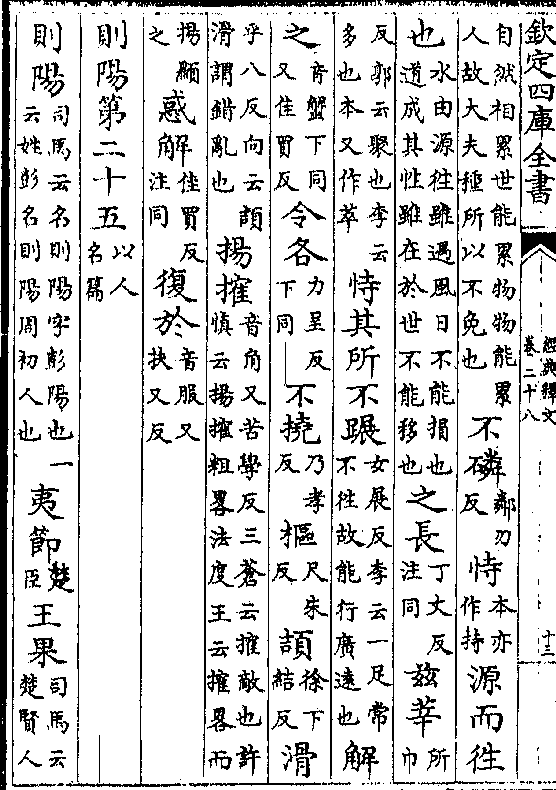 欽定四庫全書 經典釋文卷二十八 十三
自然相累世能累物物能累人故大夫種所以不免也不磷鄰刃反恃本亦作持源而往
也水由源往雖遇風日不能損也道成其性雖在於世不能移也之長丁丈反注同兹莘所巾
反郭云聚也李云多也本又作萃恃其所不蹍女展反李云一足常不往故能行廣遠也解
之音蟹下同又佳買反令各力呈反下同不撓乃孝反樞尺朱反頡徐下結反滑
乎八反向云頡滑謂錯亂也揚搉音角又苦學反三蒼云搉敵也許慎云揚搉粗畧法度王云搉畧而
揚顯之惑解佳買反注同復於音服又扶又反
則陽第二十五以人名篇
則陽司馬云名則陽字彭陽也一云姓彭名則陽周初人也夷節楚臣王果司馬云楚賢人